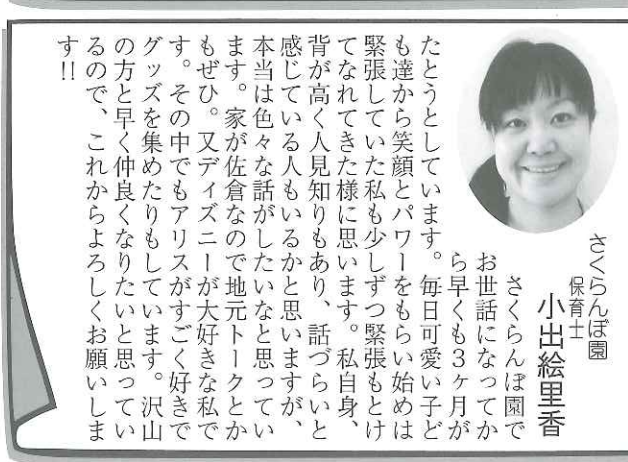 さくらんぼ園
保育士
小出絵里香
さくらんぼ園で
お世話になってか
ら早くも3ヶ月が
たとうとしています。毎日可愛い子ど
も達から笑顔とパワーをもらい始めは
緊張していた私も少しずつ緊張もとけ
てなれてきた様に思います。私自身、
背が高く人見知りもあり、話づらいと
感じている人もいるかと思いますが、
本当は色々な話がしたいなと思ってい
ます。家が佐倉なので地元トークとか
もぜひ。又ディズニーが大好きな私で
す。その中でもアリスがすごく好きで
グッズを集めたりもしています。沢山
の方と早く仲良くなりたいと思ってい
るので、これからよろしくお願いしま
す!!